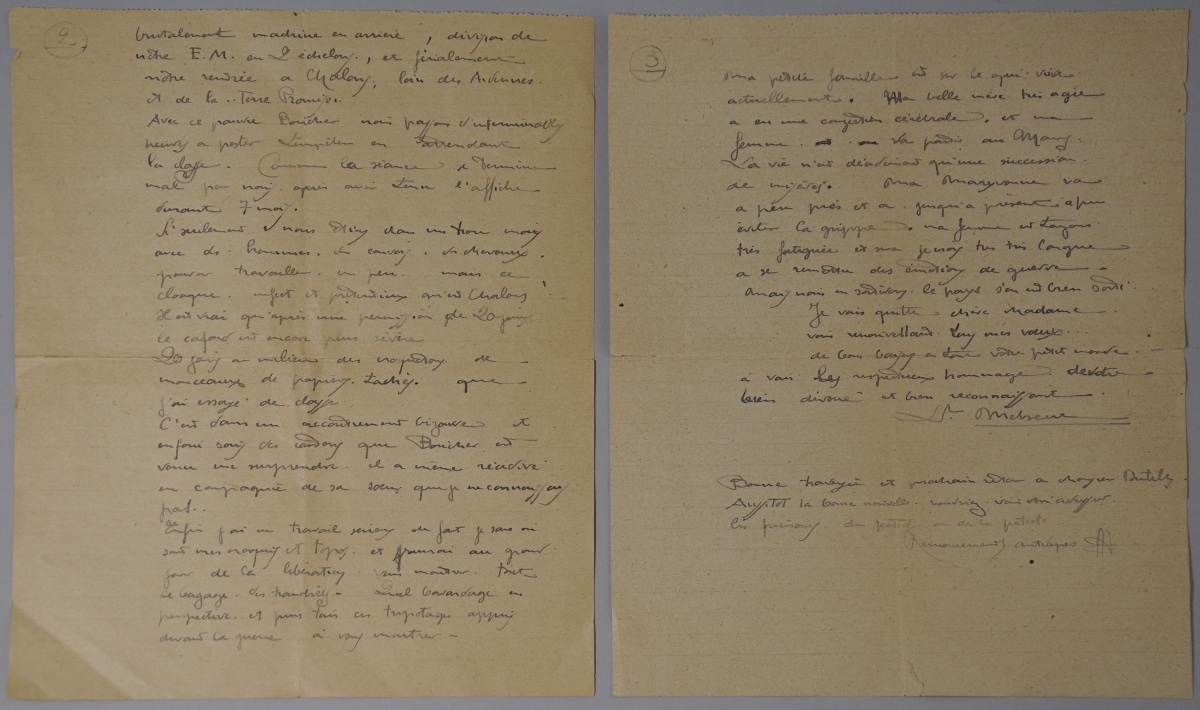 2
brutalement machine en arrière, division de
notre E.M. en 2 échelons, et finalement
notre rentrée a Chalons, loin des Ardennes
et de la "Terre Promise.
Avec ce pauvre Boucher nous passons d'interminables
heures a pester Lempelem en attendant
la classe. Comme la séance se termine
mal pour nous après avoir tenu l'affiche
durant 7 mois.
Si seulement nous étions dans un trou mais
avec des hommes, un convoi, des chevaux.
pouvoir travailler un peu. mais ce
cloaque infect et prétentieux qu'est Chalons!
Il est vrai qu'après une permission de 20 jours
le cafard est encore plus sévère
20 jours au milieu des croquetons de
monceaux de papiers, que
j'ai essayé de classer
C'est dans un accoutrement bizarre et
enfoui sous des cartons que Boucher est
venu me surprendre. il a même récidivé
en compagnie de sa sœur que je ne connaissais
pas.
Enfin j'ai un travail sérieux de fait je sais où
sont mes croquis et topos et pourrai au grand
jour de la libération vous montrer tout
le bagage des tranchées - quel bavardage en
perspective et puis tous ces tripotages
durant la guerre à vous montrer -
3
Ma petite famille est sur le qui-vive
actuellement. Ma belle mère très agée
a eu une congestion cérébrale, et ma
femme va partir au Mans.
La vie n'est décidément qu'une succession
de misères. Ma Maryvonne va
a peu près et a jusqu'a présent a pu
éviter la grippe. ma femme est toujours
très fatiguée et sera je crois très très longue
a se remettre des émotions de guerre.
Mais nous en sortirons le pays s'en est bien sorti!
Je vais quitter chère Madame
vous renouvellant tous mes vœux...
de bons baisers a tout votre petit monde -
à vous les respectueux hommages de votre
bien dévoué et bien reconnaissant
Bonne traversée et prochain retour a
Aussitot la bonne nouvelle voudriez vous m'en aviser